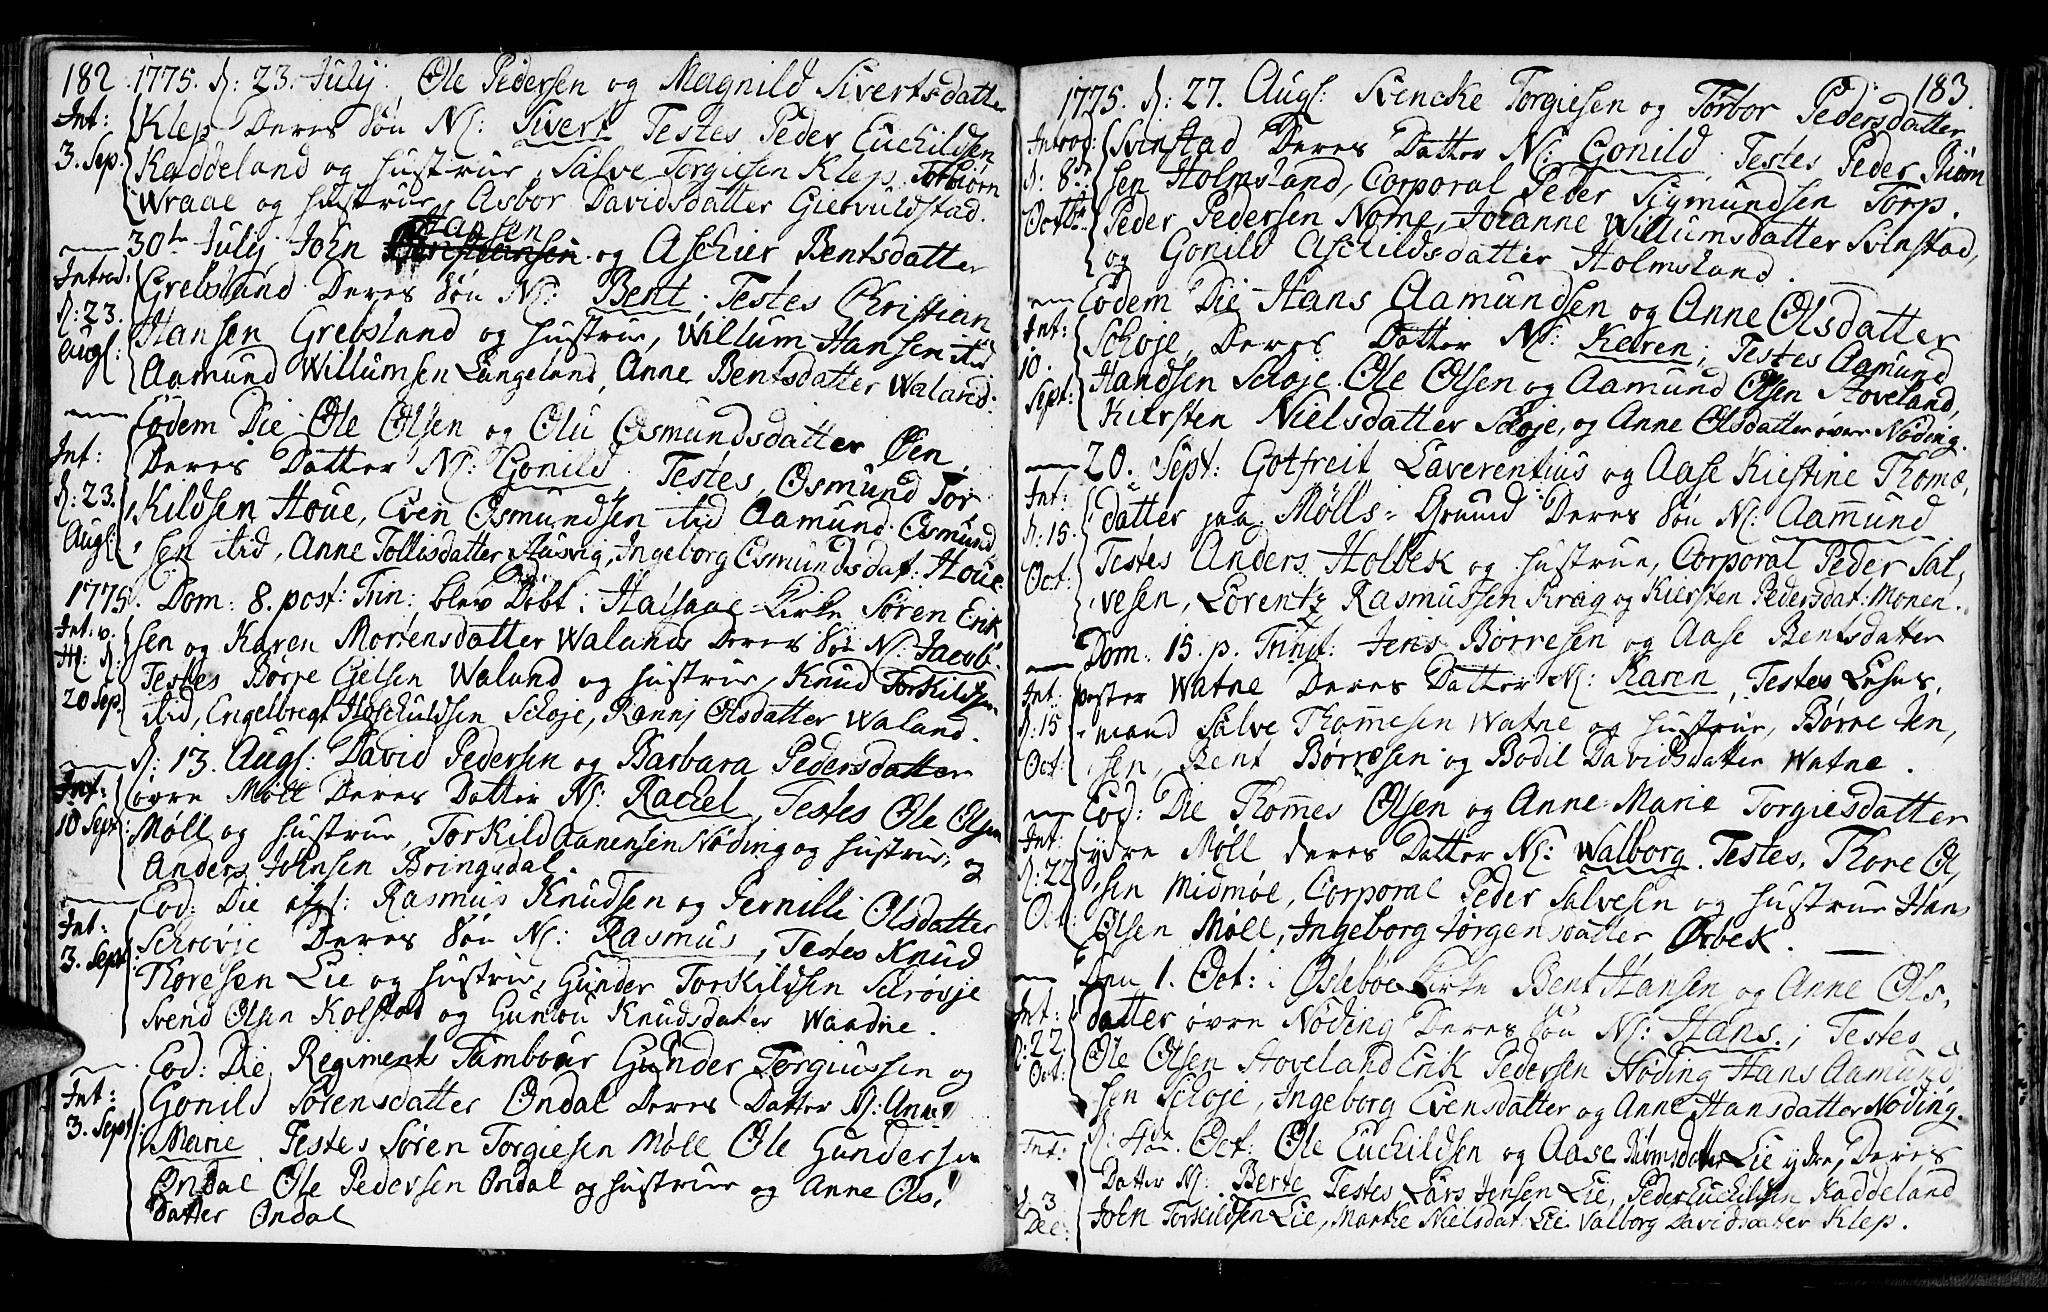 182. 1775. d: 23. July. Ole Pedersen og Magnild Sivertsdatter
Int: Klep Deres Søn N: Sivert Testes Peder Euchildsen
3. Sep. Kaddeland og hustrue, Salve Torgiesen Klep, Torbiørn
Wraae og hustrue, Asbor Davidsdatter Giervuldstad.
30te July John Hansen og Aschier Bentsdatter
Introd: Grebsland Deres Søn N: Bent. Testes Christian
d: 23. Hansen Grebsland og hustrue, Willum Hansen itid
Augs: Aamund Willumsen Langeland, Anne Bentsdatter Waland.
Eodem Die Ole Olsen og Olu Osmundsdatter Øen,
Int: Deres Datter N: Gonild. Testes, Osmund Tor,
d: 23. Kildsen Houe, Even Osmundsen itid Aamund Osmund,
Augs: sen itid, Anne Tollisdatter Ausvig, Ingeborg Osmundsdat: Houe.
1775. Dom: 8. post: Trin: blev Døbt i Halsaae Kirke Søren Erik
Int: v. sen og Karen Mortensdatter Walands Deres Søn N: Jacob.
H: d: Testes Børre Eielsen Waland og hustrue, Knud Torkildsen
20 Sep. itid, Engelbregt Schoje, Rannj Olsdatter Waland.
d: 13. Augs: David Pedersen og Barbara Pedersdatter
Int: øvre Møll Deres Datter N: Rachel, Testes Ole Olsen
10 Sept: Møll og hustrue, Torkild Aanensen Nøding og hustrue, og
Anders Johnsen Bringsdal.
Eod: Die Rasmus Knudsen og Pernille Olsdatter
Int: Schrøvje Deres Søn N: Rasmus, Testes Knud
3. Sept: Thoresen Lie og hustrue, Gunder Torkildsen Schrøvje
Svend Olsen Kolstad og Gunlou Knudsdatter Waadne.
Eod: Die Regiments Tambour Gunder Torgiussen og
Int: Gonild Sørensdatter Øndal Deres Datter N: Anne
3. Sept: Marie. Testes Søren Torgiesen Møll Ole Gundersen
Øndal Ole Pedersen Øndal og hustrue og Anne Ols,
datter Øndal
183.
1775. d: 27. Augs: Svencke Torgiesen og Torbor Pedersdatter
Introd: Svinstad Deres Datter N: Gonild. Testes Peder Biørn
d: 8de sen Holmsland, Corporal Peder Sigmundsen Torp.
Octbr. Peder Pedersen Nome, Johanne Willumsdatter Svinstad,
og Gonild Aschildsdatter Holmsland.
Eodem Die Hans Aamundsen og Anne Olsdatter
Int: Schoje, Deres Datter N: Karen; Testes Aamund
10. Handsen Schoje. Ole Olsen og Aamund Olsen Hoveland,
Sept: Kiersten Nielsdatter Schoje, og Anne Olsdatter øvre Nøding.
20. Sept: Gotfreit Laverentius og Aase Kiestine Thomæ,
Int: datter paa Mølls-Grund Deres Søn N: Aamund
d: 15. Testes Anders Holbek og hustrue, Corporal Peder Sal,
Oct: vesen, Lorentz Rasmussen Krag og Kiersten Pedersdat: Monen.
Dom: 15. p. Trinit: Jens Børresen og Aase Bentsdatter
Int: vester Watne Deres Datter N: Karen, Testes Lehns,
d: 15 mand Salve Thommesen Watne og hustrue, Børre Jen,
Oct: sen, Bent Børresen og Bodil Davidsdatter Watne.
Eod: Die Thommes Olsen og Anne Marie Torgiesdatter
Int: ydre Møll deres Datter N: Walborg. Testes, Thore Ol,
d: 22 sen Midmøe, Corporal Peder Salvesen og hustrue Hans
Oct: Olsen Møll, Ingeborg Jørgensdatter Ørbek.
Den 1. Oct: i Øsleboe Kirke Bent Hansen og Anne Ols,
Int: datter øvre Nøding Deres Søn N: Hans; Testes
d: 22 Ole Olsen Hoveland Erik Pedersen Nøding Hans Aamund,
Oct: sen Schoje, Ingeborg Evensdatter og Anne Hansdatter Nøding.
Int: d: 4de Oct: Ole Euchildsen og Aase Biørnsdatter Lie ydre, Deres
Datter N: Berte Testes Lars Jensen Lie, Peder Euchildsen Kaddeland
d. 3 Dec: John Torkildsen Lie, Marthe Nielsdat: Lie Valborg Davidsdatter Klep.